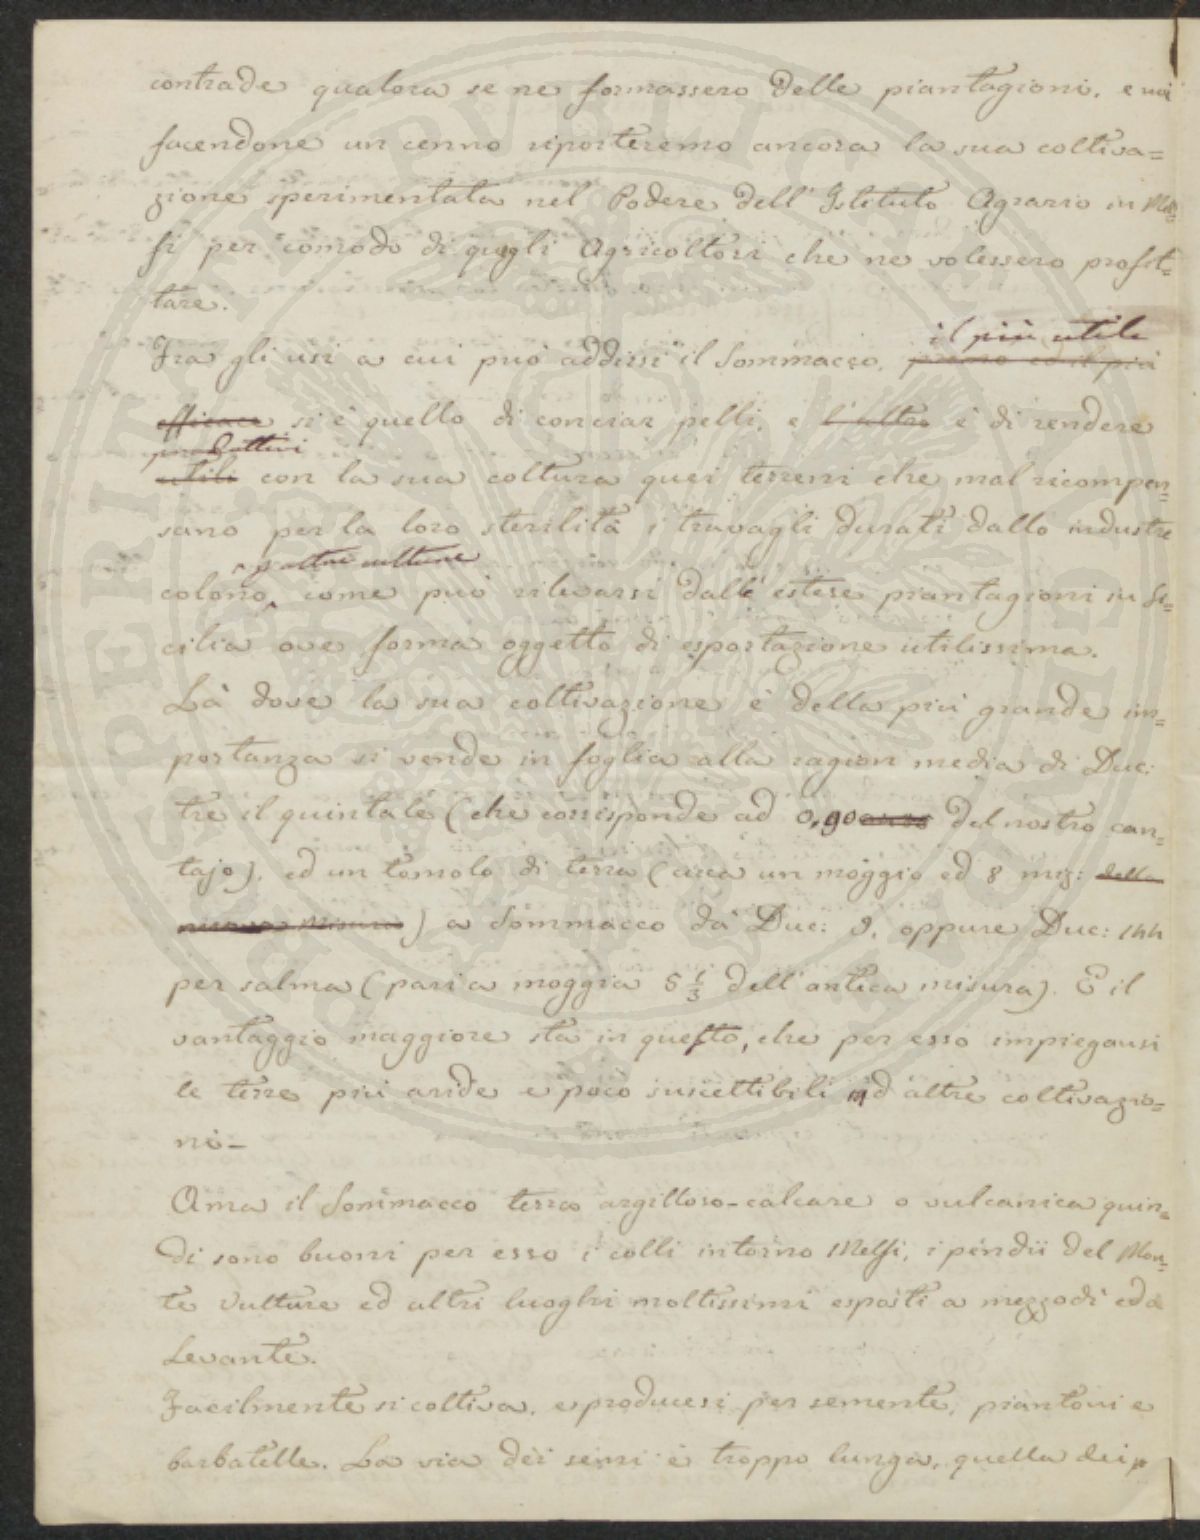 contrade qualora se ne formassero delle piantagioni, e noi
facendone un cenno riporteremo ancora la sua coltiva=
zione sperimentata nel Podere dell'Istituto Agrario in Mel=
fi per comodo di quegli Agricoltori che ne volessero profit=
tare.
il più utile
Fra gli usi a cui può addirsi il Sommacco, primo ed il più
efficace si è quello di conciar pelli, e l'altro è di rendere
produttivi
utili con la sua coltura quei terreni che mal ricompen=
sano per la loro sterilità i travagli durati dallo industre
p altre colture
colono, come può rilevarsi dalle estese piantagioni in Si=
cilia ove forma oggetto di esportazione utilissima.
Là dove la sua coltivazione è della più grande im=
portanza si vende in foglia alla ragion media di Duc:
tre il quintale (che corrisponde ad 0,90 del nostro can=
tajo), ed un tomolo di terra (circa un moggio ed 8 mis: della
nuova Misura) a Sommacco dà Duc: 9, oppure Duc: 144
per salma (pari a moggia 5 1/3 dell'antica misura). E il
vantaggio maggiore sta in questo, che per esso impiegansi
le terre più aride e poco suscettibili ad altre coltivazio=
ni –
Ama il Sommacco terra argilloso-calcare o vulcanica quin=
di sono buoni per esso i colli intorno Melfi, i pendii del Mon=
te Vulture ed altri luoghi moltissimi esposti a mezzodì ed a
Levante.
Facilmente si coltiva, e produces per semente, piantoni e
barbatelle. La via dei semi è troppo lunga, quella dei
PROSPERITATI PUBLICAE AUGENDAE